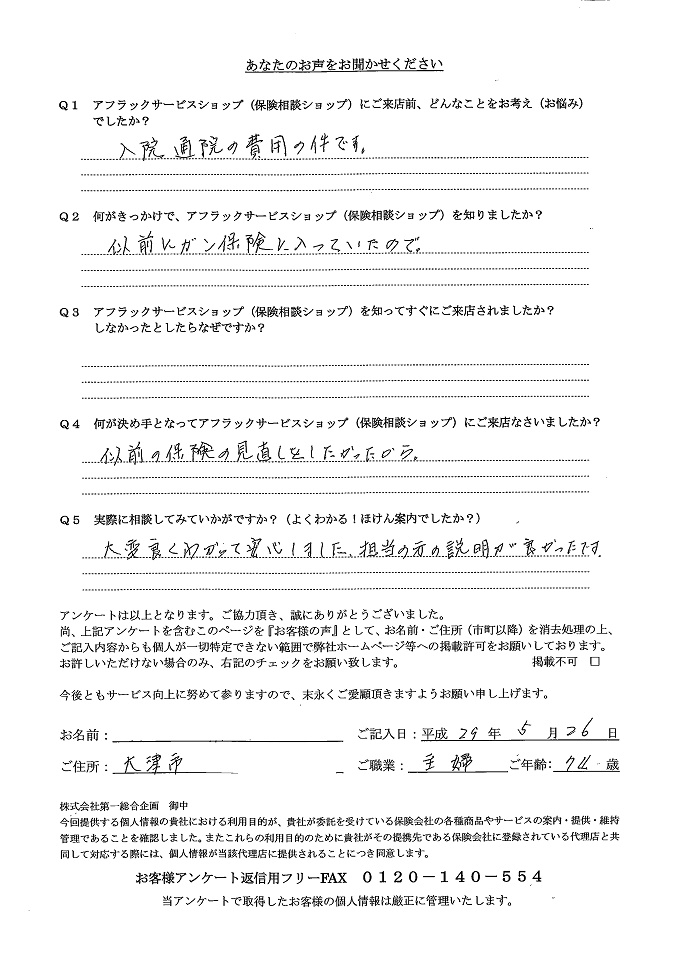 あなたのお声をお聞かせください
Q1 アフラックサービスショップ（保険相談ショップ）にご来店前、どんなことをお考え（お悩み）
でしたか？
入院通院の費用の件です。
Q2 何がきっかけで、アフラックサービスショップ（保険相談ショップ）を知りましたか？
以前にガン保険に入っていたので。
Q3 アフラックサービスショップ（保険相談ショップ）を知ってすぐにご来店されましたか？
しなかったとしたらなぜですか？
Q4 何が決め手となってアフラックサービスショップ（保険相談ショップ）にご来店なさいましたか？
以前の保険の見直しをしたかったから。
Q5 実際に相談してみていかがですか？（よくわかる！ほけん案内でしたか？）
大変良くわかって安心しました、担当の方の説明が良かったです
アンケートは以上となります。ご協力頂き、誠にありがとうございました。
尚、上記アンケートを含むこのページを『お客様の声』として、お名前・ご住所（市町以降）を消去処理の上、
ご記入内容からも個人が一切特定できない範囲で弊社ホームページ等への掲載許可をお願いしております。
お許しいただけない場合のみ、右記のチェックをお願い致します。 掲載不可 □
今後ともサービス向上に努めて参りますので、末永くご愛顧頂きますようお願い申し上げます。
お名前： ご記入日：平成 29 年 5 月 26 日
ご住所： 大津市 ご職業： 主婦 ご年齢： 歳
株式会社第一総合企画 御中
今回提供する個人情報の貴社における利用目的が、貴社が委託を受けている保険会社の各種商品やサービスの案内・提供・維持
管理であることを確認しました。またこれらの利用目的のために貴社がその提携先である保険会社に登録されている代理店と共
同して対応する際には、個人情報が当該代理店に提供されることにつき同意します。
お客様アンケート返信用フリーFAX 0120－140－554
当アンケートで取得したお客様の個人情報は厳正に管理いたします。